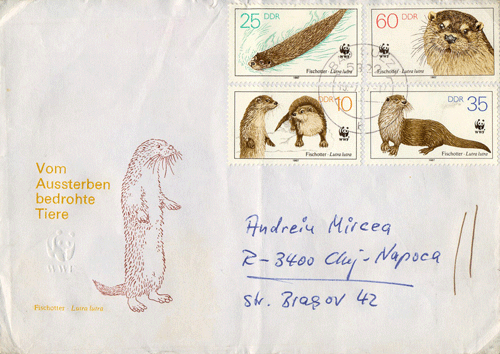 25 DDR
WWF
Fischotter · Lutra lutra
60 DDR
WWF
Fischotter · Lutra lutra
DDR
10
WWF
Fischotter · Lutra lutra
DDR 35
WWF
Fischotter · Lutra lutra
Vom
Aussterben
bedrohte
Tiere
WWF
Fischotter · Lutra lutra
Andreiu Mircea
R-3400 Cluj-Napoca
Str. Brașov 42